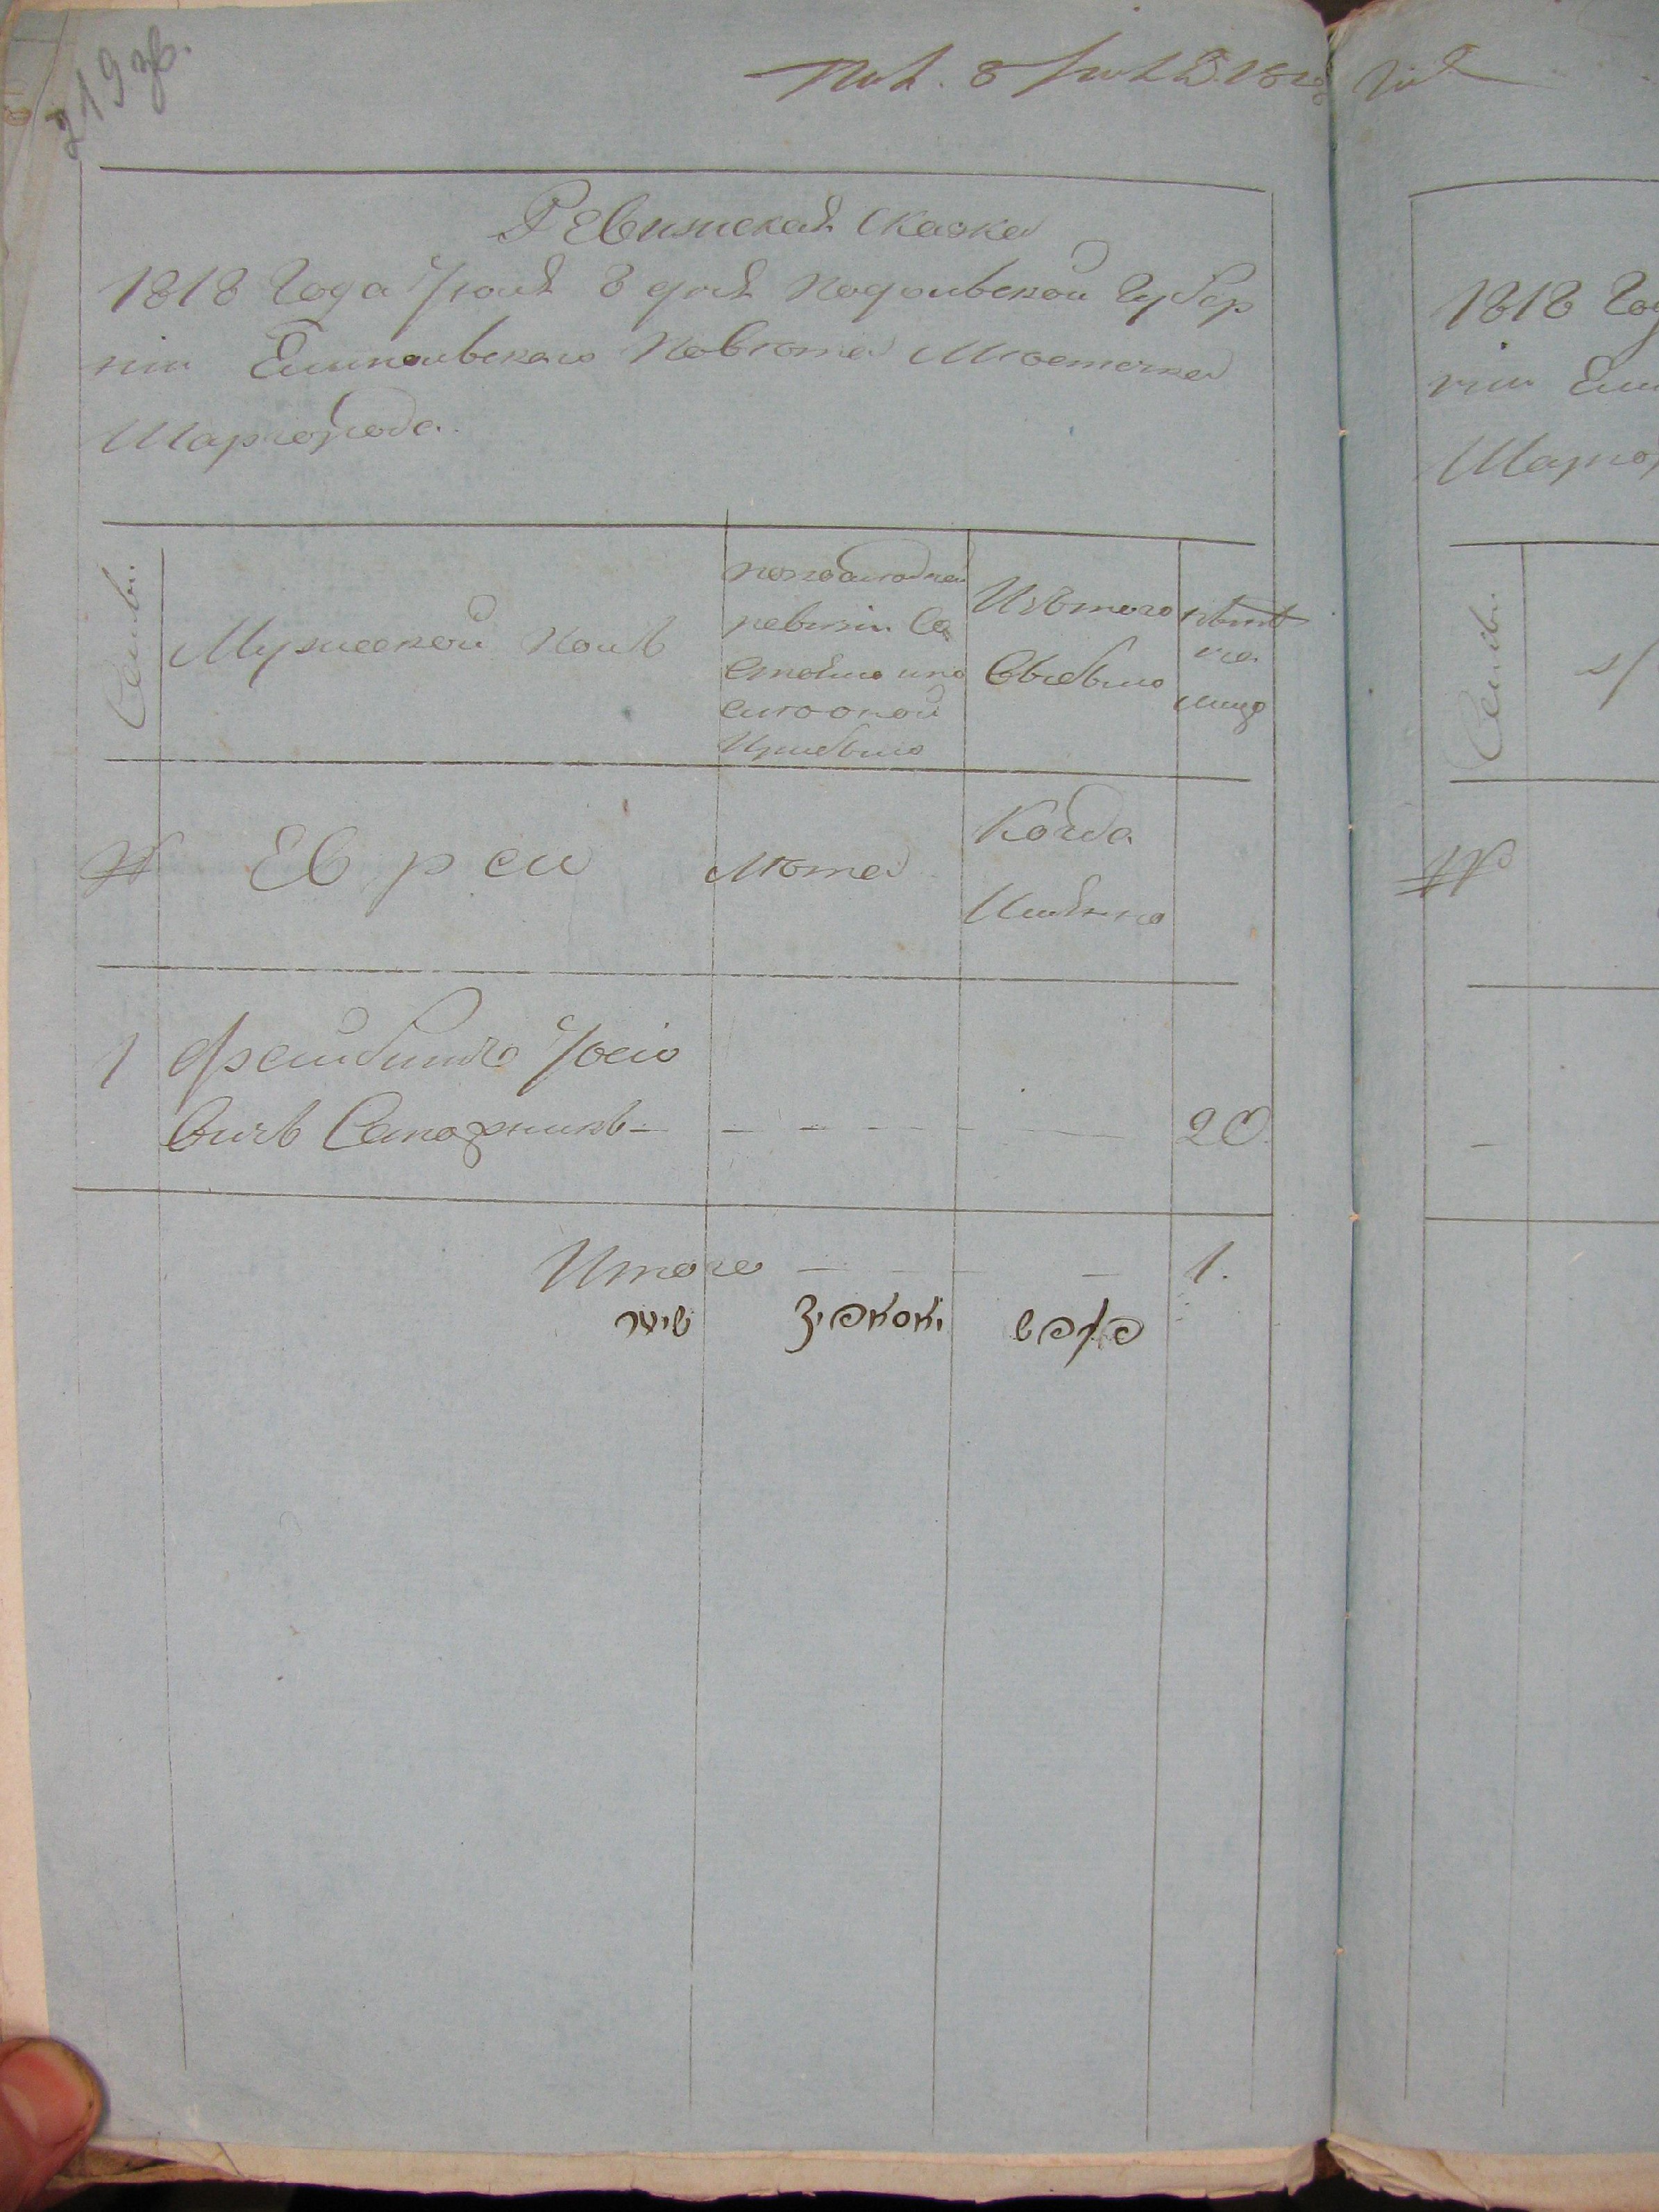 219 зв.
8 1818
Ревизская сказка
1818 Года Июня 8 дня Подольской Губер
ніи Ямпольского Повѣта Мѣстечка
Шаргорода.
Семьи.
Мужеской Полъ
попоследней
ревизіи Со
стояло и по
слѣ оной
Прибыло
Изътого
Выбыло
нынѣ
на
лицо
№
Евреи
Лѣта
Когда
Имянно
1
Фейбишъ Іосіо
вичъ Сапожникъ
20
Итого
1.
1818
ніи
Шарго
Семьи.
№